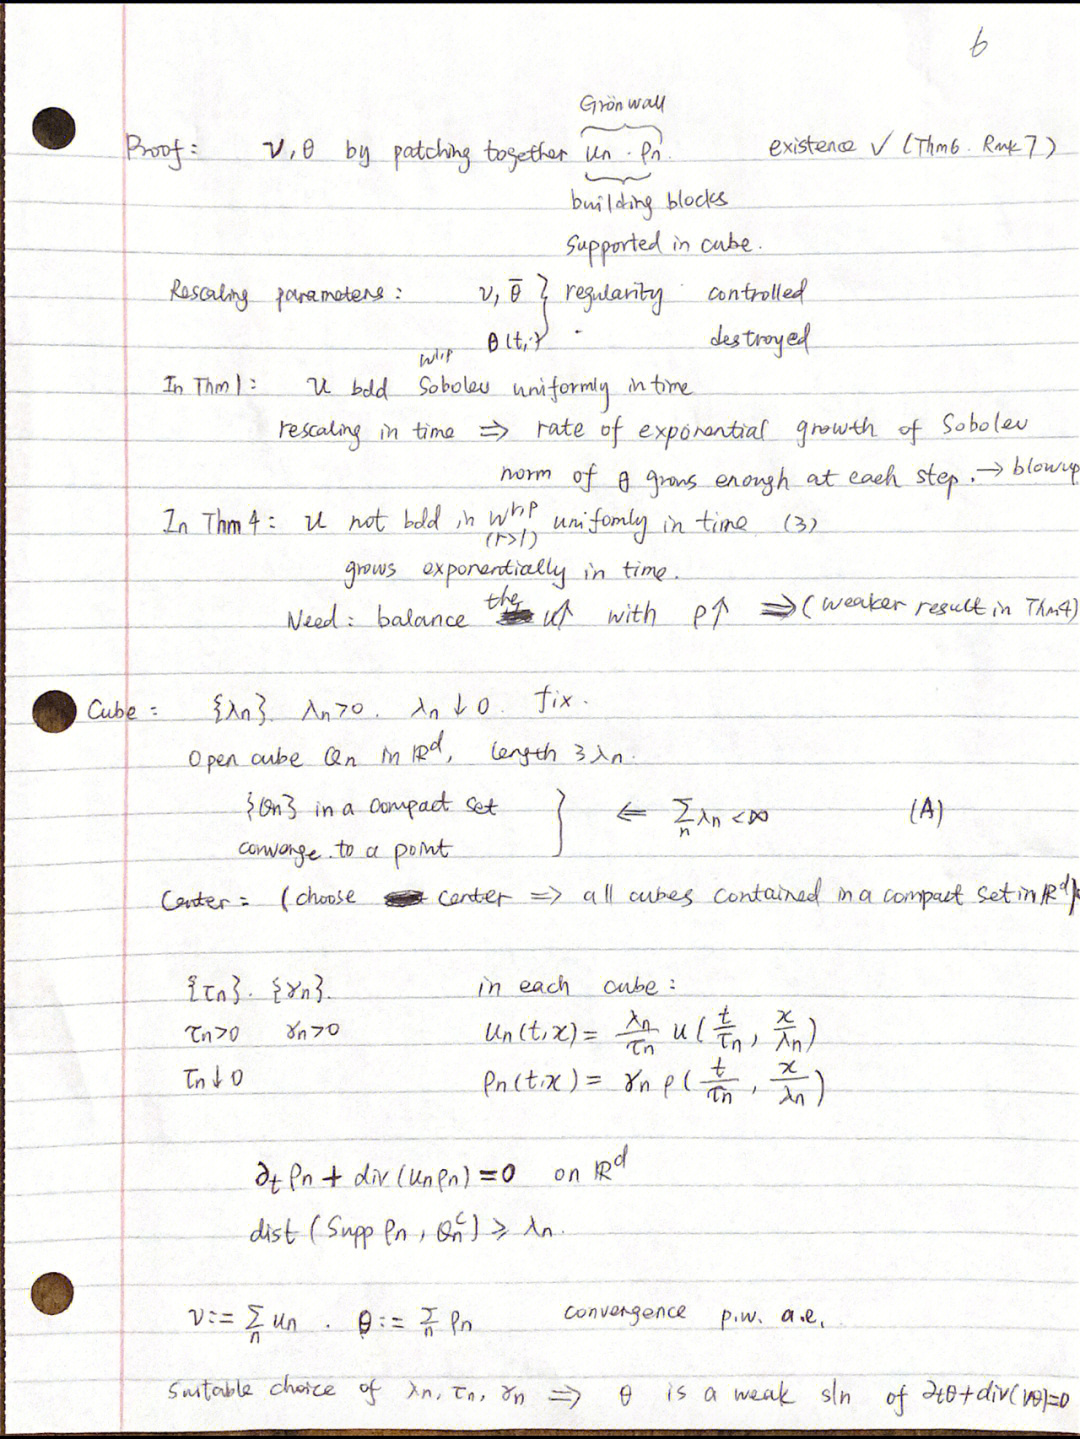 6
Grönwall
Proof: v, θ by patching together un · ρn. existence ✓ (Thm6. Rmk7)
building blocks
supported in cube.
Rescaling parameters: v, θ̄ } regularity controlled
θ(t,·) destroyed
W^{r,p}
In Thm1: u bdd Sobolev uniformly in time
rescaling in time ⇒ rate of exponential growth of Sobolev
norm of θ grows enough at each step. → blowup
In Thm4: u not bdd in W^{r,p} uniformly in time (3)
(r>1)
grows exponentially in time.
Need: balance the u↑ with ρ↑ ⇒ (weaker result in Thm4)
Cube: {λn}. λn>0. λn↓0. fix.
Open cube Qn in ℝ^d, length 3λn.
{Qn} in a compact set } ⇐ Σ_n λn<∞ (A)
converge to a point
Center: (choose center ⇒ all cubes contained in a compact set in ℝ^d)
{τn}. {γn}. in each cube:
τn>0 γn>0 un(t,x) = λn/τn u(t/τn, x/λn)
τn↓0 ρn(t,x) = γn ρ(t/τn, x/λn)
∂t ρn + div(un ρn) = 0 on ℝ^d
dist(supp ρn, Qn^c) ≥ λn.
v := Σ_n un. θ := Σ_n ρn convergence p.w. a.e.
Suitable choice of λn, τn, γn ⇒ θ is a weak sln of ∂tθ+div(vθ)=0